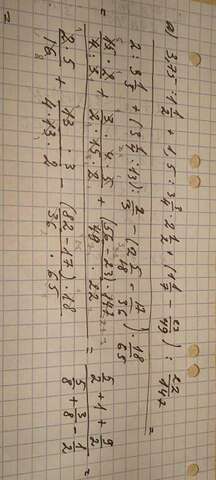 a) 3,75 : 1 1/2 + 1,5 : 3 3/4 · 2 1/2 + (1 1/7 − 23/49) : 22/147
2 : 3 1/5 + (3 1/4 : 13) : 2/3 − (2 5/18 − 17/36) · 18/65 =
= 15 · 2 / 4 · 3 + 3 · 4 · 5 / 2 · 15 · 2 + (56 − 23) · 147 / 49 · 22 = 5/2 + 1 + 9/2
2 · 5 / 16 + 13 · 3 / 4 · 13 · 2 − (82 − 17) · 18 / 36 · 65 5/8 + 3/8 − 1/2 =
=